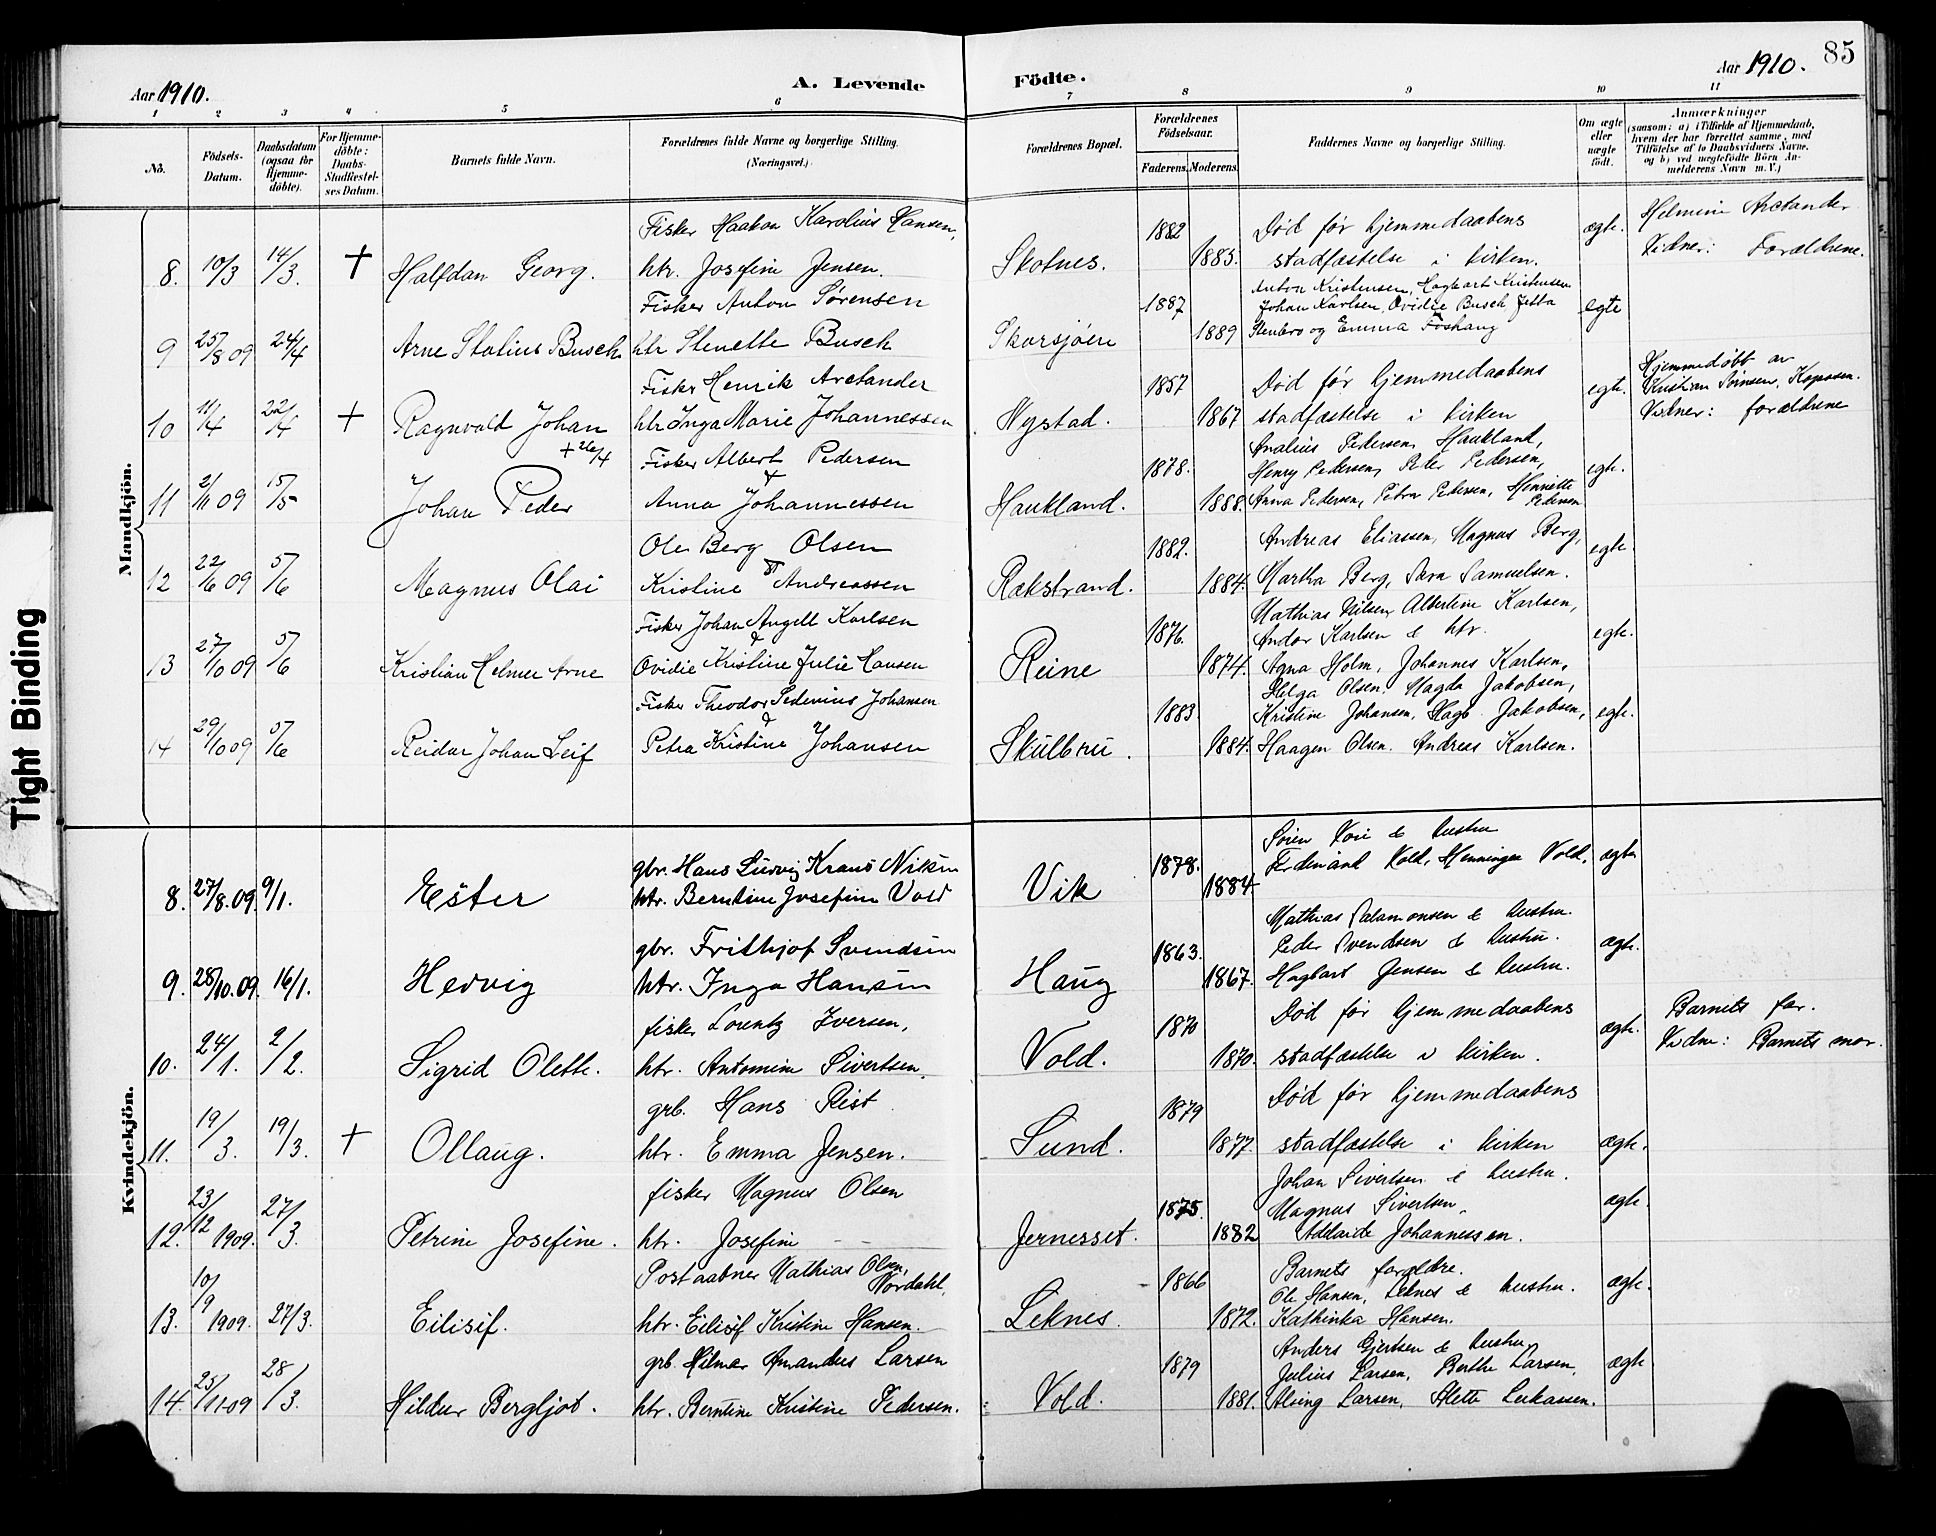 Aar 1910.
A. Levende
Födte.
Aar 1910.
85
1 2 3 4 5 6 7 8 9 10 11
No.
Födsels-
Datum.
Daabsdatum
(ogsaa for
Hjemme-
döbte).
For Hjemme-
döbte:
Daabs-
Stadfæstel-
ses Datum.
Barnets fulde Navn.
Forældrenes fulde Navne og borgerlige Stilling.
(Næringsvei.)
Forældrenes Bopæl.
Forældrenes
Födselsaar.
Faderens. Moderens.
Faddernes Navne og borgerlige Stilling.
Om ægte
eller
uægte
födt.
Anmærkninger
(saasom: a) i Tilfælde af Hjemmedaab,
hvem der har forrettet samme, med
Tilföielse af to Daabsvidners Navne,
og b) ved uægtefödte Börn An-
melderens Navn m. V.)
Mandkjön.
Fisker Haakon Karolius Hansen,
1882
Død før hjemmedaabens
ægte.
Helmine Arctander
8. 10/3 14/3. † Halfdan Georg.
htr. Josefine Jensen.
Skotnes.
1885.
stadfæstelse i kirken.
Vidner: Forældrene.
Fisker Anton Sørensen
1887
Anton Kristensen, Hagbart Kristensen
Johan Karlsen, Ovidie Busch, Jetta
egte
9 25/8 09 24/4 Arne Stolius Busch
htr Stenette Busch
Skarsjøen
1889
Stenbro og Emma Foshaug
Fisker Henrik Arctander
1857
Død før hjemmedaabens
egte.
Hjemmedøbt av
Kristian Sørnsen, Koposen.
10 11/4 22/4 + Ragnvald Johan
+ 26/4
htr Inga Marie Johannessen
Nystad.
1867
stadfæstelse i kirken
Vidner: forældrene
Fisker Albert Pedersen
1878.
Analius Pedersen, Haukland,
Henry Pedersen, Peter Pedersen,
egte.
11 2/11 09 15/5 Johan Peder
&
Anna Johannessen
Haukland.
1888.
Anna Pedersen, Petra Pedersen, Henriette
Pedersen
Ole Berg Olsen
1882.
Andreas Eliassen, Magnus Berg,
egte.
12 22/6 09 5/6 Magnus Olai
Kristine & Andreassen
Rækstrand.
1884.
Martha Berg, Sara Samuelsen.
Fisker Johan Angell Karlsen
1876.
Mathias Nilsen, Albertine Karlsen,
Andor Karlsen & htr.
egte.
13 27/10 09 5/6 Kristian Helmer Arne
&
Ovidie Kristine Julie Hansen
Reine
1874.
Agna Holm, Johannes Karlsen,
Fisker Theodor Sedenius Johansen
1883.
Helga Olsen, Magda Jakobsen,
Kristine Johansen, Hagb. Jakobsen,
egte.
14 29/10 09 5/6 Reidar Johan Leif
&
Petra Kristine Johansen
Skulbru.
1884.
Haagen Olsen. Andreas Karlsen.
Kvindekjön.
gbr. Hans Ludvig Kraus Nilsen
1878.
Sören Vori & hustru
Ferdinand Vold, Henninge Vold.
ægte
8. 27/8.09. 9/1. Ester
htr. Berntine Josefine Vold
Vik
1884.
gbr. Frithjof Svendsen
1863.
Mathias Salamonsen & hustru.
Peder Svendsen & hustru.
ægte.
9. 28/10.09. 16/1. Hedvig
htr. Inga Hansen
Haug
1867.
Hagbart Jensen & hustru.
fisker Lorentz Iversen,
1870
Død før hjemmedaabens
ægte.
Barnets far.
10. 24/1. 2/2. Sigrid Olette.
htr. Antomine Sivertsen,
Vold.
1870.
stadfæstelse i kirken.
Vidne: Barnets mor.
grb. Hans Rist
1879
Død før hjemmedaabens
11. 19/3. 19/3. + Ollaug.
htr. Emma Jensen.
Sund.
1877.
stadfæstelse i kirken
ægte.
fisker Magnus Olsen
1875.
Johan Sivertsen & hustru.
Magnus Sivertsen,
ægte.
12. 23/12 1909. 27/3. Petrine Josefine.
htr. Josefine
Jernesset.
1882
Adelaide Johannessen.
Postaabner Mathias Olsen,
Nordahl,
1866
Barnets forældre.
Ole Hansen, Leknes & hustru.
ægte.
13. 10/9 1909. 27/3. Eilisif.
htr. Eilisif Kristine Hansen.
Leknes.
1872.
Kathinka Hansen.
grb. Hilmar Amandus Larsen
1879
Anders Gjertsen & hustru,
Julius Larsen, Berthe Larsen,
ægte
14. 25/11-09 28/3. Hildur Bergljot.
htr. Berntine Kristine Pedersen.
Vold.
1881.
Alving Larsen, Alette Lukassen.
Tight Binding